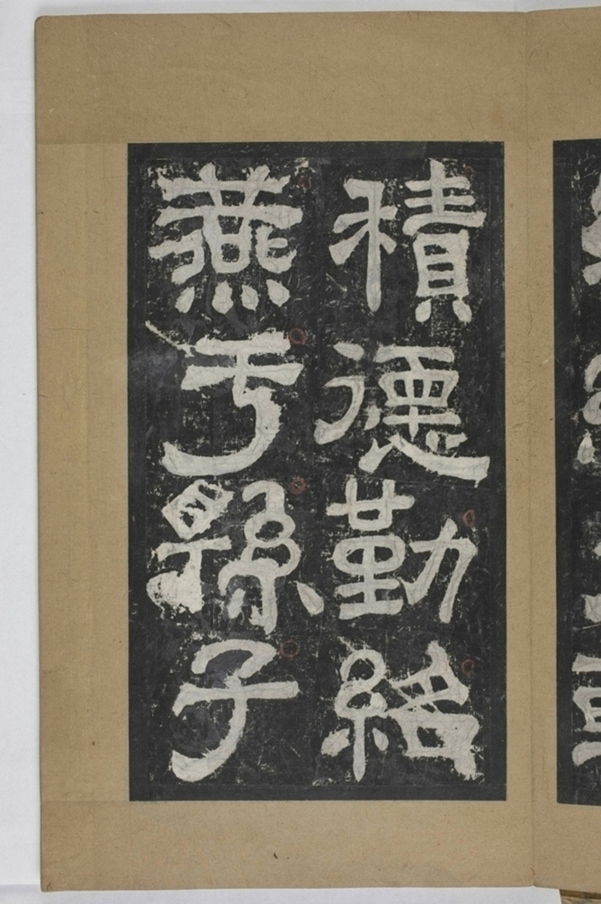 積德勤紹
燕于孫子